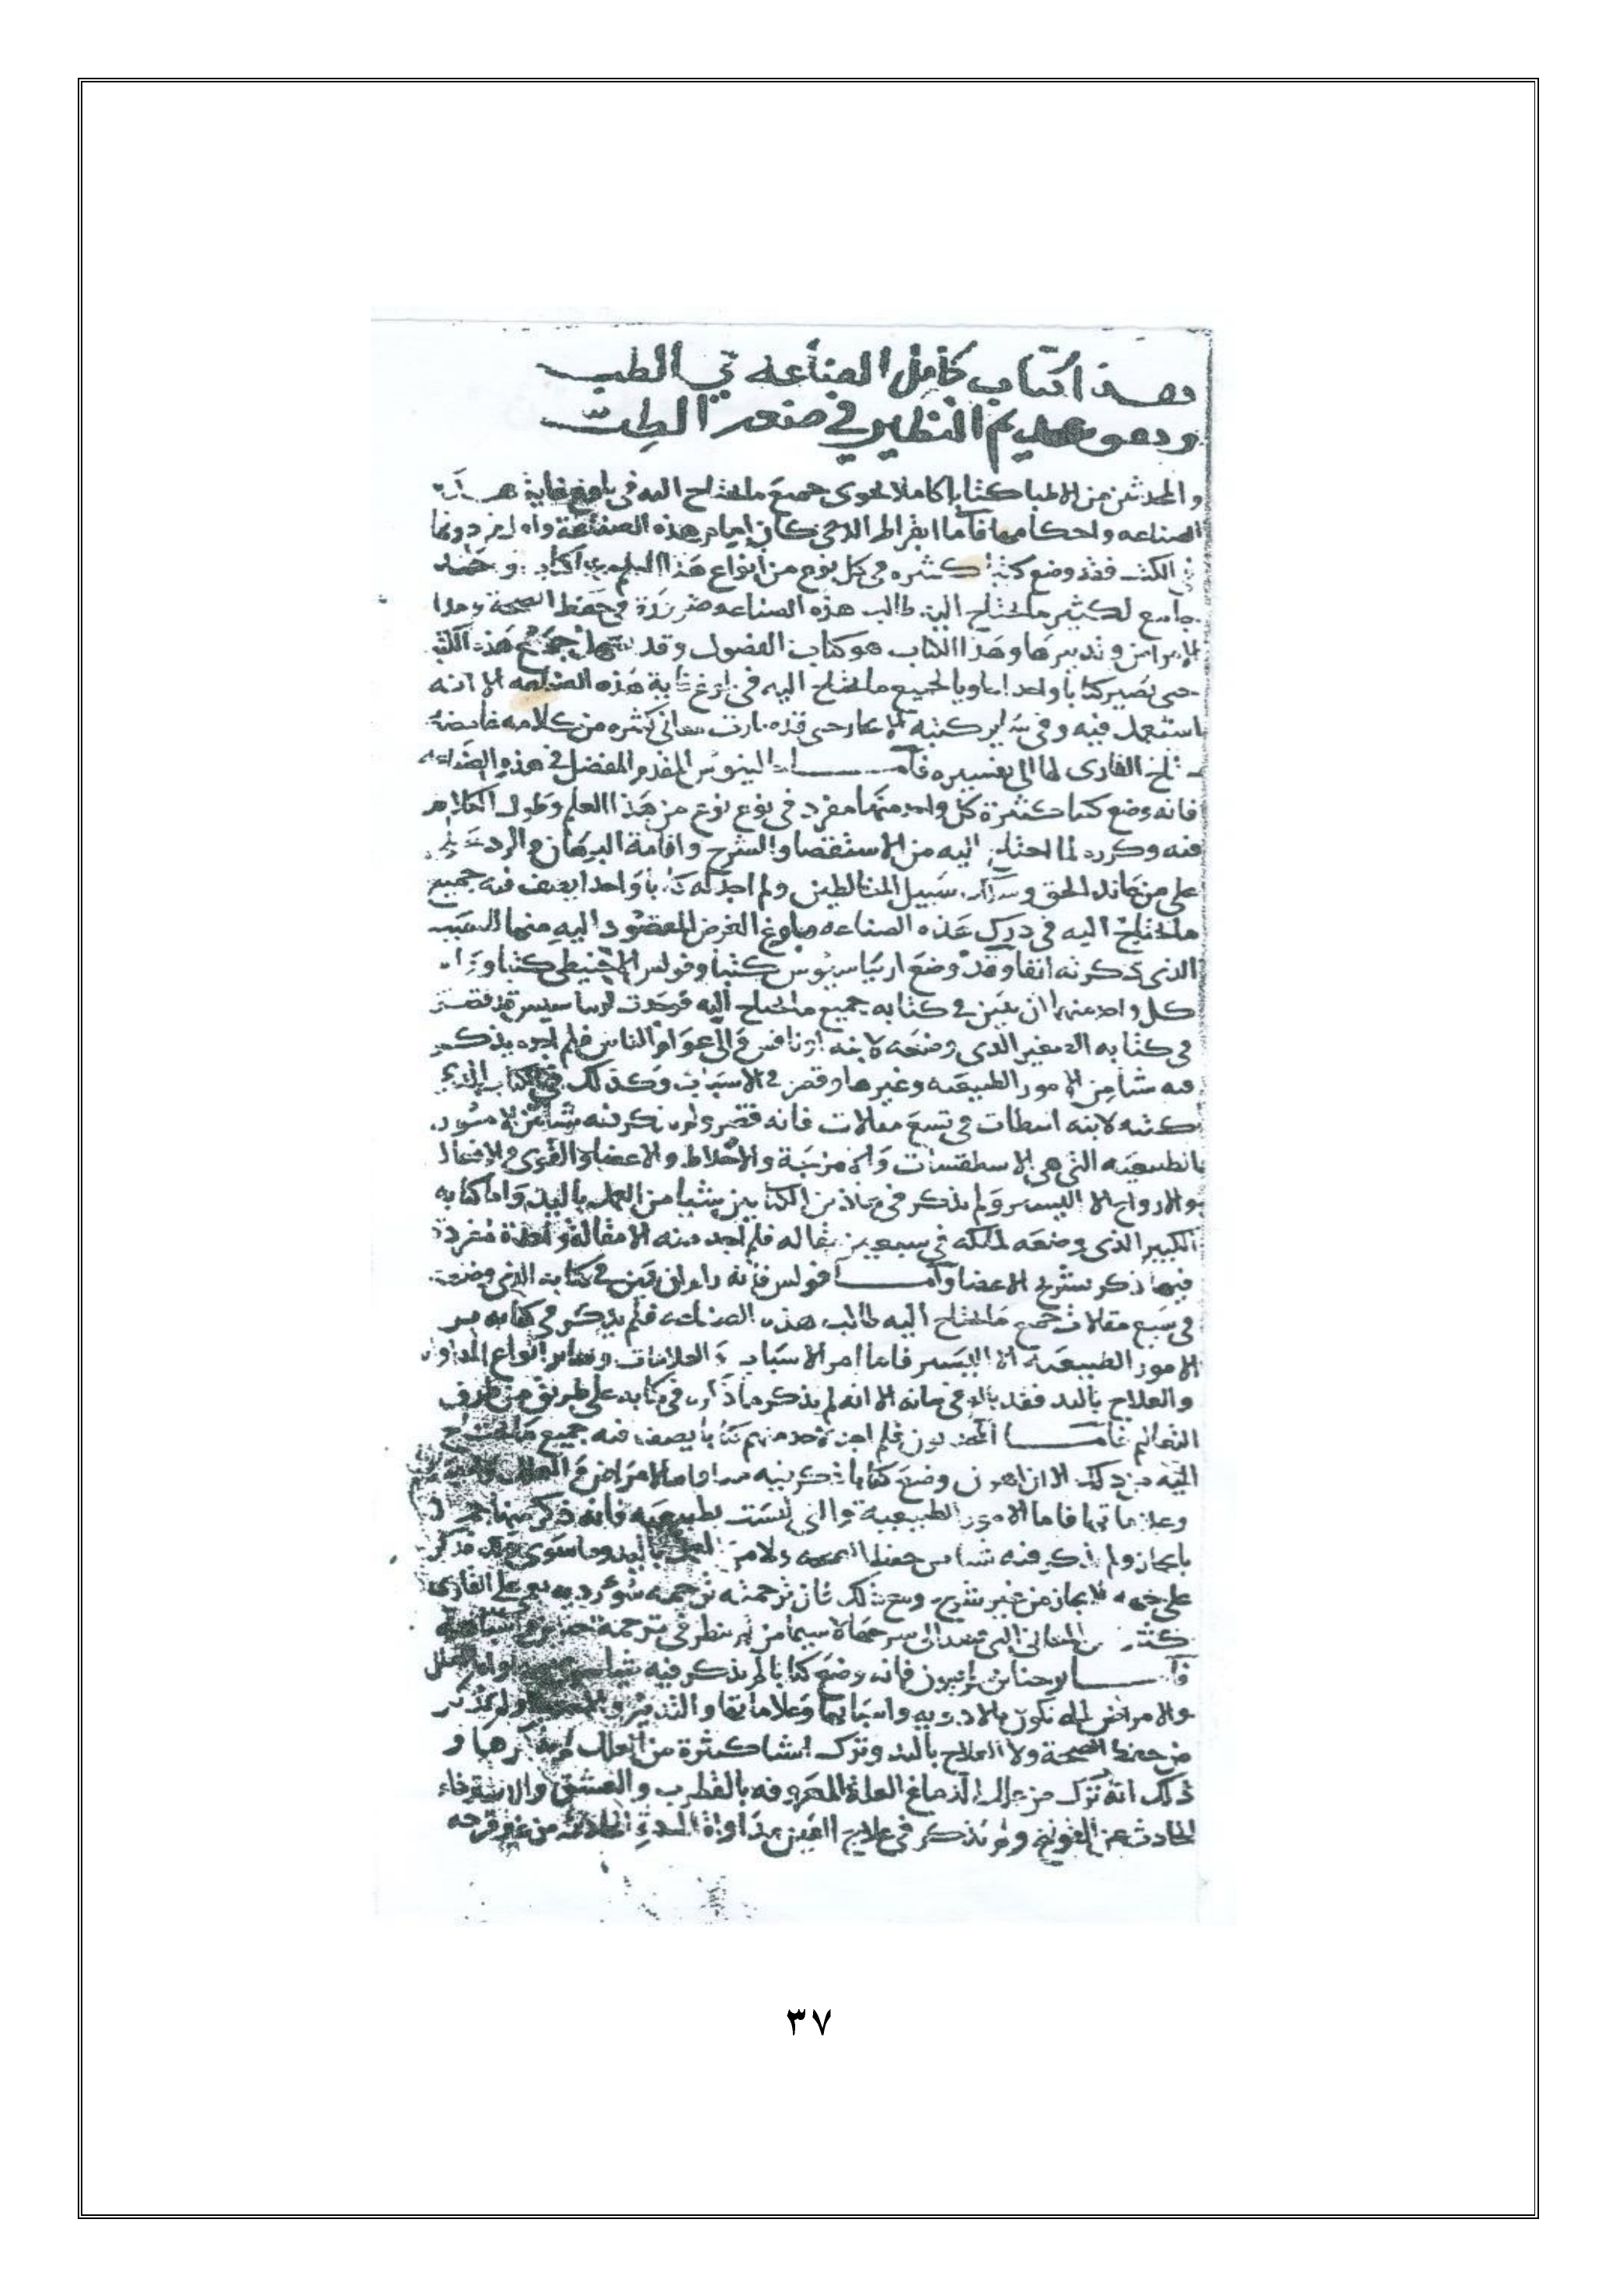 وهذا كتاب كامل الصناعه في الطب
وهو عديم النظير في صنعة الطب
والمحدثين من الاطبا كتابا كاملا يحوى جميع ما يحتاج اليه في بلوغ غاية هذه
الصناعه واحكامها فاما ابقراط الذي كان امام هذه الصناعة واول من دونها
في الكتب فقد وضع كتبا كثيره في كل نوع من انواع هذا العلم
جامع لكثير ما يحتاج اليه طالب هذه الصناعه ضرورة في حفظ الصحة
الامراض وتدبيرها وهذا الكتاب هو كتاب الفصول وقد جميع هذه الكتب
حتى تصير كتابا واحدا حاويا لجميع ما يحتاج اليه في بلوغ غاية هذه الصناعه الا انه
استعمل فيه وفي ساير كتبه الايجاز حتى قد صارت معاني كثيره من كلامه غامضة
يحتاج القارى لها الى تفسيره فاما جالينوس المقدم المفضل في هذه الصناعه
فانه وضع كتبا كثيرة كل واحد منها مفرد في نوع نوع من هذا العلم وطول الكلام
فيه وكرره لما احتاج اليه من الاستقصا والشرح واقامة البرهان والرد
على من عاند الحق سبيل المغالطين ولم اجد له كتابا واحدا يصف فيه جميع
ما يحتاج اليه في درك هذه الصناعه وبلوغ الغرض المقصود اليه منها للسبب
الذي ذكرته انفا وقد وضع اريباسيوس كتبا وفولس الاجنيطي كتبا ورام
كل واحد منهما ان يبين في كتابه جميع ما يحتاج اليه فوجدت اريباسيس قد قصر
في كتابه الصغير الذي وضعه لابنه اونافس والى عوام الناس فلم اجده يذكر
فيه شيا من الامور الطبيعيه وغيرها وقصر في الاسباب وكذلك في الكتاب الذي
كتبه لابنه اسطاث في تسع مقالات فانه قصر ولم يذكر فيه شيا من الامور
الطبيعيه التي هي الاسطقسات والامزجة والاخلاط والاعضا والقوى والافعال
والارواح الا اليسير ولم يذكر في هاذين الكتابين شيا من العمل باليد واما كتابه
الكبير الذي وضعه لملكه في سبعين مقاله فلم اجد منه الا مقالة واحدة مفردة
فيها ذكر تشريح الاعضا واما فولس فانه رام ان يبين في كتابه الذي وضعه
في سبع مقالات جميع ما يحتاج اليه طالب هذه الصناعه فلم يذكر في كتابه من
الامور الطبيعيه الا اليسير فاما امر الاسباب والعلامات وساير انواع المداواة
والعلاج باليد فقد بالغ في بيانه الا انه لم يذكر ما ذكره في كتابه على طريق من طرق
التعاليم فاما المحدثون فلم اجد لاحد منهم كتابا يصف فيه جميع ما يحتاج
اليه من ذلك الا ان اهرون وضع كتابا ذكر فيه مداواة الامراض والعلل
وعلاماتها فاما الامور الطبيعية والتي ليست بطبيعيه فانه ذكر منها
بايجاز ولم يذكر فيه شيا من حفظ الصحه ولا من العمل باليد وما سوى ذلك
على جهه الايجاز من غير شرح ومع ذلك فان ترجمته ترجمه سوء رديه على القارى
كثير من المعاني التي قصد الى شرحها لا سيما من لم ينظر في ترجمة
فاما يوحنا بن سرابيون فانه وضع كتابا لم يذكر فيه العلل
والامراض التي تكون بالادويه واسبابها وعلاماتها والتدبير ولم يذكر
من حفظ الصحة ولا العلاج باليد وترك اشيا كثيرة من العلل لم يذكرها و
ذلك انه ترك من علل الدماغ العلة المعروفه بالقطرب والعشق والاسترخاء
الحادث عن القولنج ولم يذكر في علاج العين مداواة من غير قرحه
٣٧